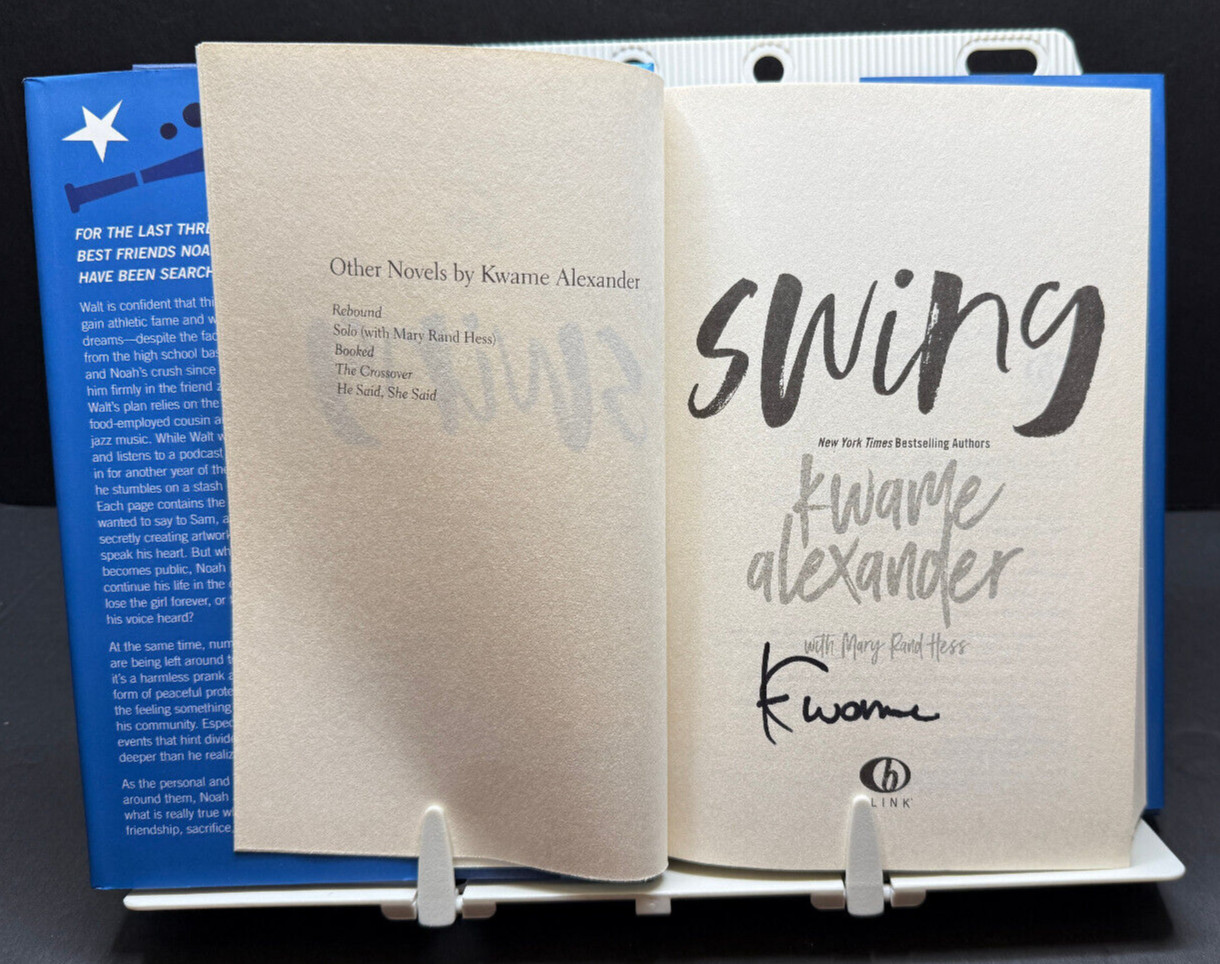 FOR THE LAST
BEST FRIENDS
HAVE BEEN
Walt is confident that
gain athletic fame and
dreams—despite the
from the high school
and Noah's crush since
him firmly in the friend
Walt's plan relies on the
food-employed cousin
jazz music. While Walt
and listens to a podcast
in for another year of
he stumbles on a stash
Each page contains the
wanted to say to Sam,
secretly creating
speak his heart. But
becomes public, Noah
continue his life in the
lose the girl forever, or
his voice heard?
At the same time,
are being left around
it's a harmless prank
form of peaceful
the feeling something
his community.
events that hint
deeper than he
As the personal and
around them, Noah
what is really true
friendship, sacrifice,
Other Novels by Kwame Alexander
Rebound
Solo (with Mary Rand Hess)
Booked
The Crossover
He Said, She Said
swing
New York Times Bestselling Authors
kwame
alexander
with Mary Rand Hess
Kwame
LINK